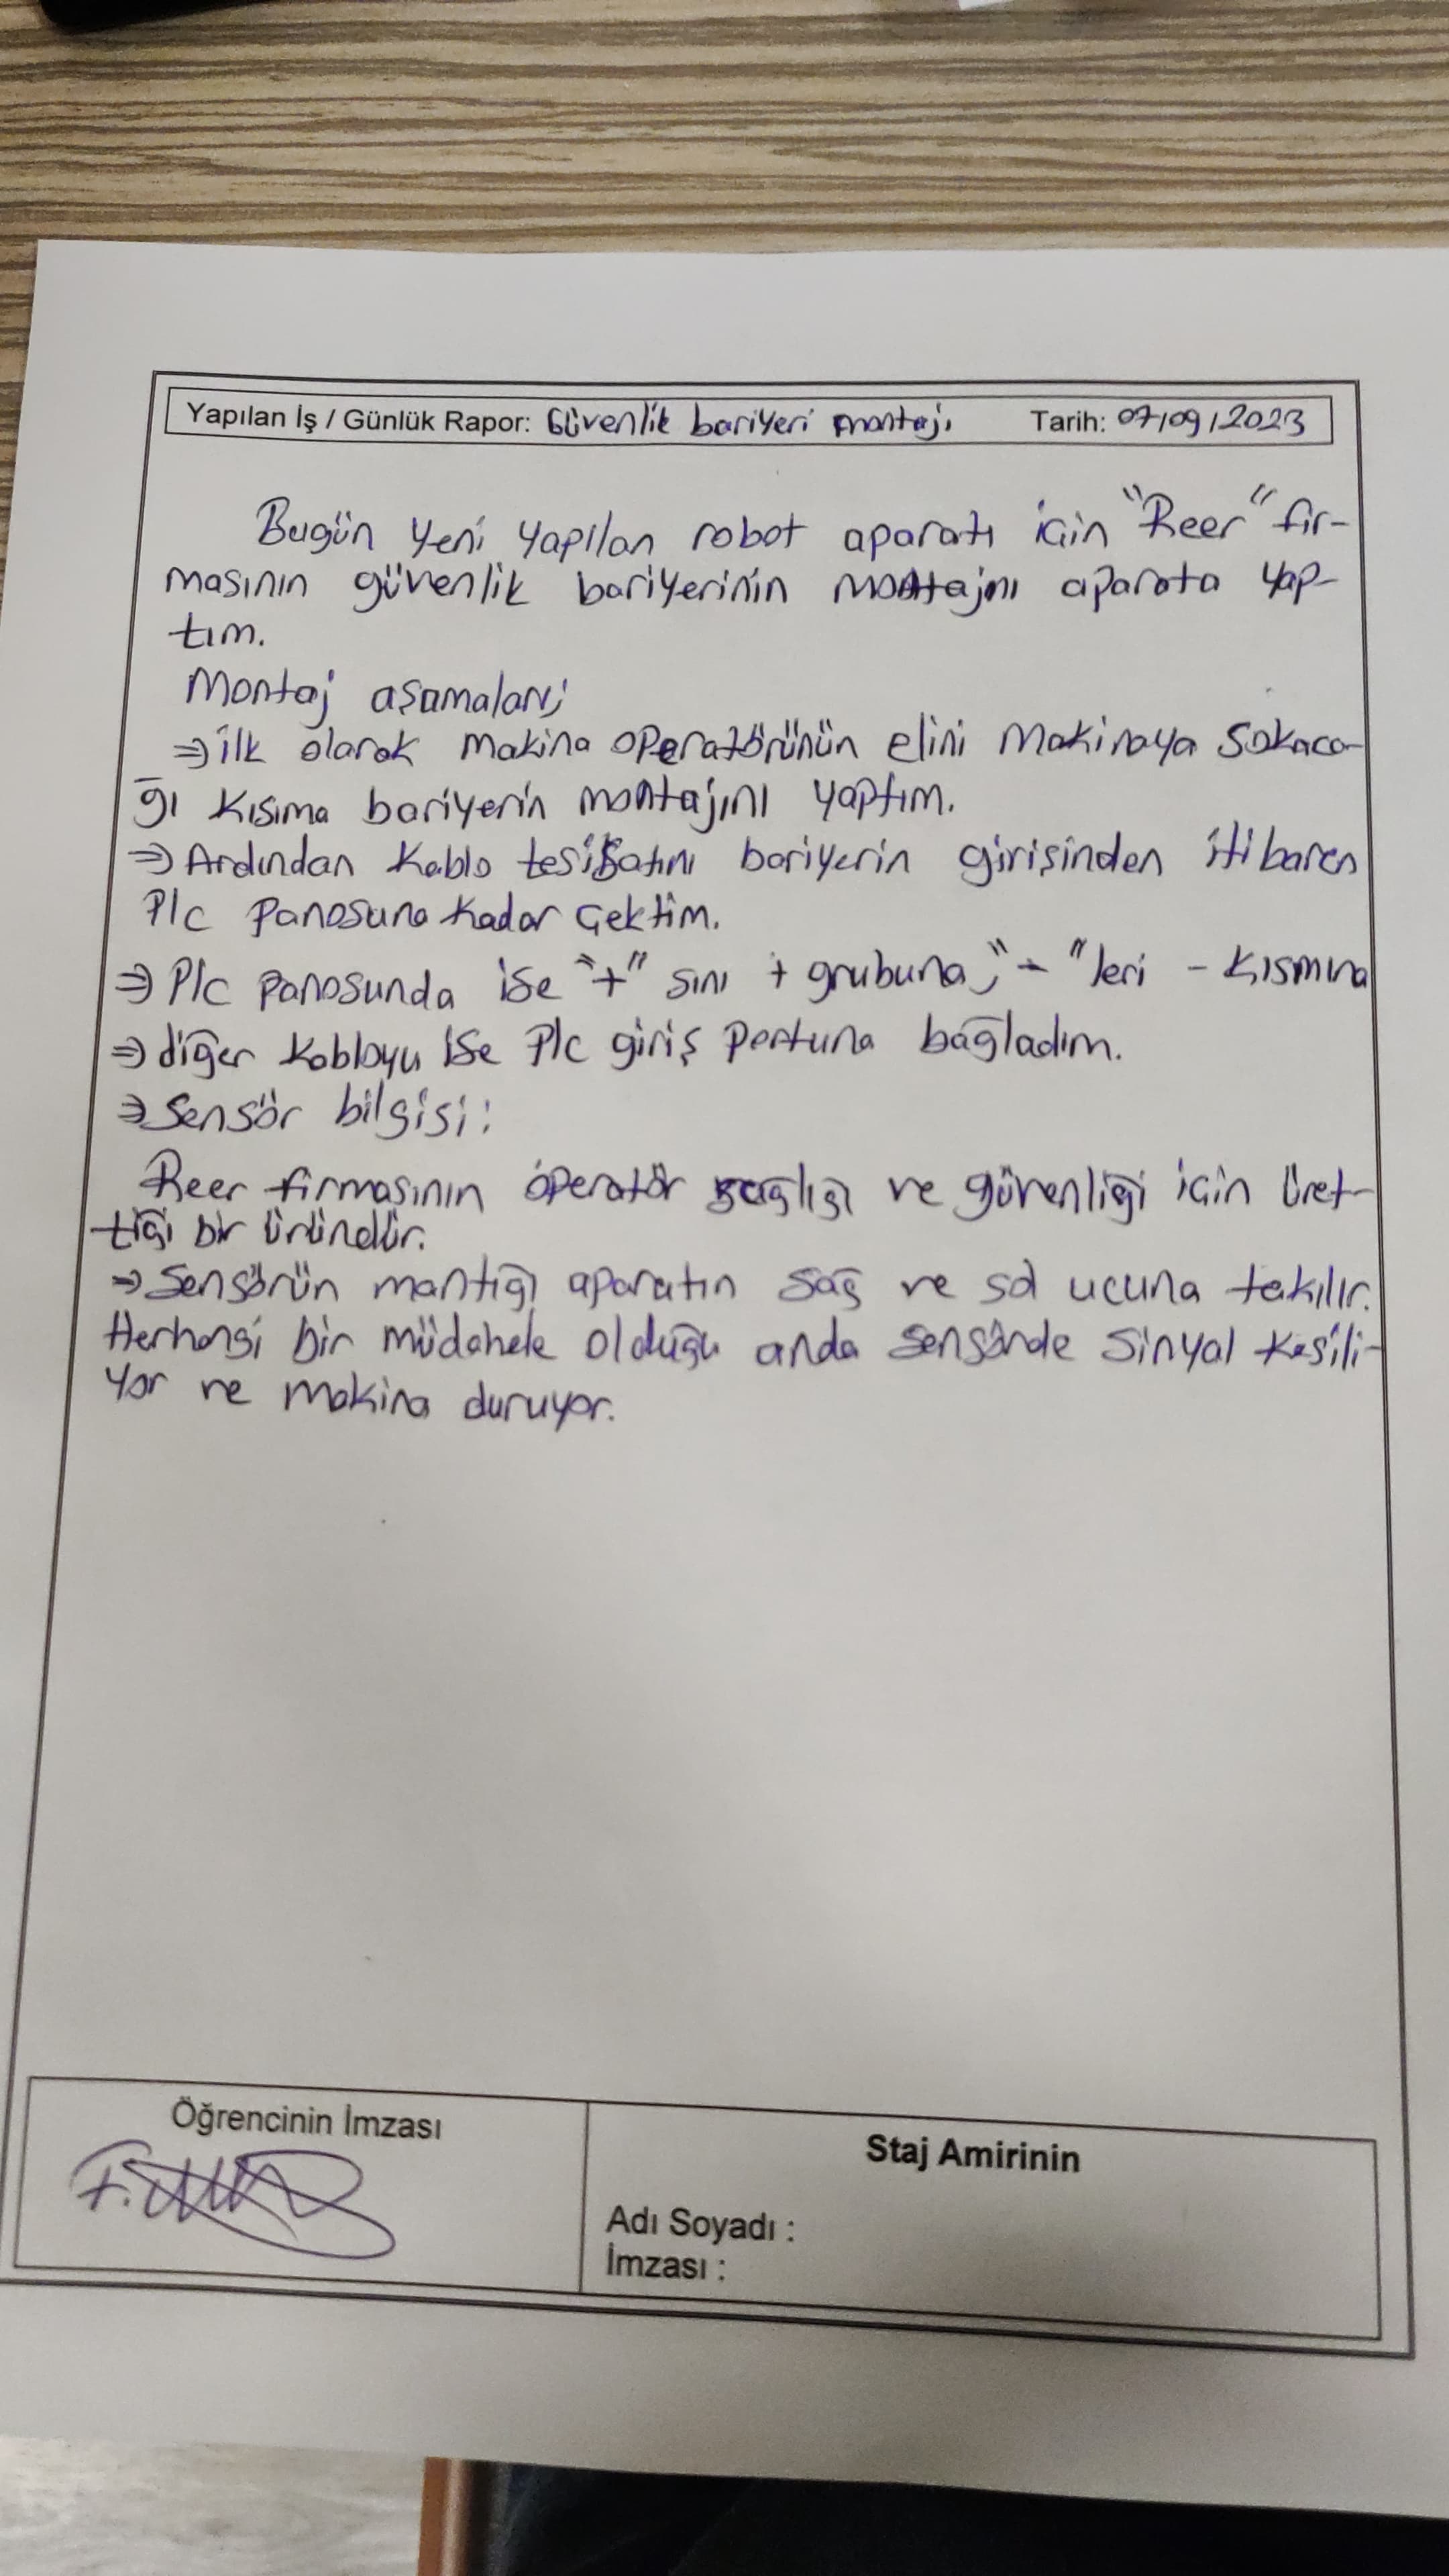 Yapılan İş / Günlük Rapor: Güvenlik bariyeri montajı Tarih: 07/09/2023
Bugün yeni yapılan robot aparatı için "Reer" fir-
masının güvenlik bariyerinin montajını aparata yap-
tım.
Montaj aşamaları;
⇒ ilk olarak makina operatörünün elini makinaya sokaca-
ğı kısıma bariyerin montajını yaptım.
⇒ Ardından kablo tesisatını bariyerin girişinden itibaren
Plc panosuna kadar çektim.
⇒ Plc panosunda ise "+" sını + grubuna, "-" leri - kısmına
⇒ diğer kabloyu ise Plc giriş portuna bağladım.
⇒ Sensör bilgisi:
Reer firmasının operatör sağlığı ve güvenliği için üret-
tiği bir üründür.
⇒ Sensörün mantığı aparatın sağ ve sol ucuna takılır.
Herhangi bir müdahele olduğu anda sensörde sinyal kesili-
yor ve makina duruyor.
Öğrencinin İmzası
Staj Amirinin
Adı Soyadı :
İmzası :